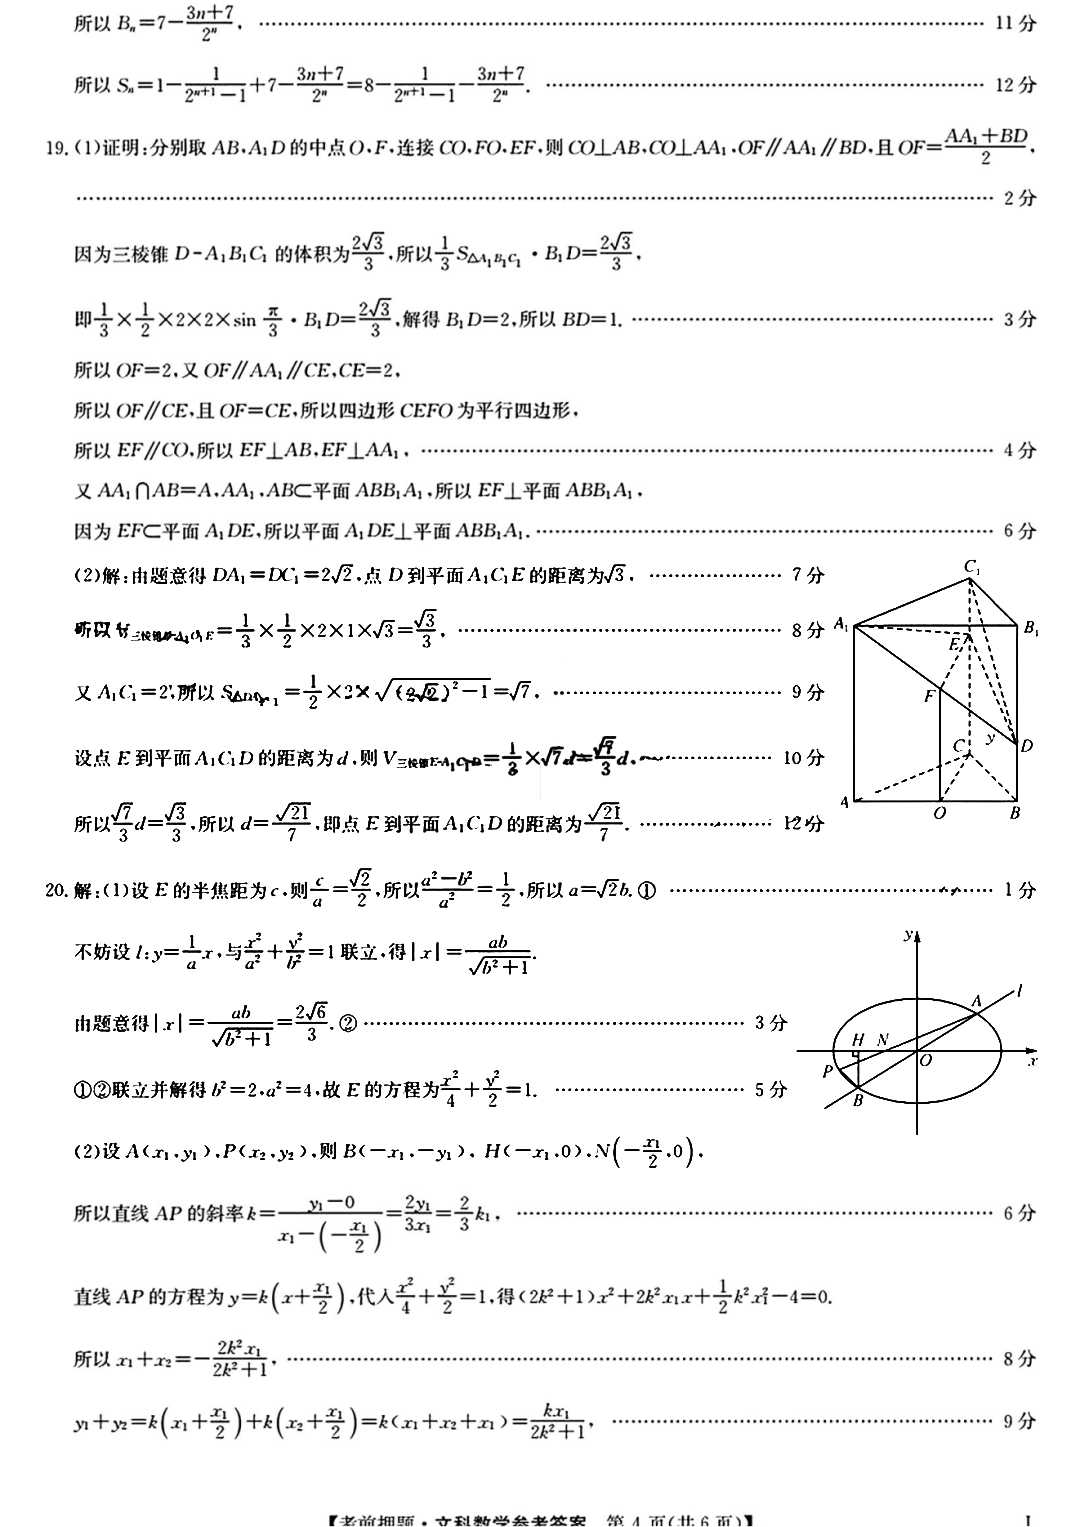 所以 Bₙ=7−(3n+7)/2ⁿ, …… 11分
所以 Sₙ=1−1/(2ⁿ⁺¹−1)+7−(3n+7)/2ⁿ=8−1/(2ⁿ⁺¹−1)−(3n+7)/2ⁿ. …… 12分
19.(1)证明:分别取 AB,A₁D 的中点 O,F,连接 CO,FO,EF,则 CO⊥AB,CO⊥AA₁,OF∥AA₁∥BD,且 OF=(AA₁+BD)/2,
…… 2分
因为三棱锥 D-A₁B₁C₁ 的体积为 2√3/3,所以 1/3 S△A₁B₁C₁·B₁D=2√3/3,
即 1/3×1/2×2×2×sin π/3·B₁D=2√3/3,解得 B₁D=2,所以 BD=1. …… 3分
所以 OF=2,又 OF∥AA₁∥CE,CE=2,
所以 OF∥CE,且 OF=CE,所以四边形 CEFO 为平行四边形,
所以 EF∥CO,所以 EF⊥AB,EF⊥AA₁, …… 4分
又 AA₁∩AB=A,AA₁,AB⊂平面 ABB₁A₁,所以 EF⊥平面 ABB₁A₁,
因为 EF⊂平面 A₁DE,所以平面 A₁DE⊥平面 ABB₁A₁. …… 6分
(2)解:由题意得 DA₁=DC₁=2√2,点 D 到平面 A₁C₁E 的距离为√3, …… 7分
所以 =1/3×1/2×2×1×√3=√3/3, …… 8分
又 A₁C₁=2,所以 =1/2×2×√((2√2)²−1)=√7, …… 9分
设点 E 到平面 A₁C₁D 的距离为 d,则 V三棱锥E-A₁C₁D=1/3×√7d=√7/3 d, …… 10分
所以 √7/3 d=√3/3,所以 d=√21/7,即点 E 到平面 A₁C₁D 的距离为 √21/7. …… 12分
C₁
A₁
B₁
E
F
C
y
D
A
O
B
20.解:(1)设 E 的半焦距为 c,则 c/a=√2/2,所以 (a²−b²)/a²=1/2,所以 a=√2b.① …… 1分
不妨设 l:y=1/a x,与 x²/a²+y²/b²=1 联立,得|x|=ab/√(b²+1).
由题意得|x|=ab/√(b²+1)=2√6/3.② …… 3分
①②联立并解得 b²=2,a²=4,故 E 的方程为 x²/4+y²/2=1. …… 5分
y
A
l
H
N
O
x
P
B
(2)设 A(x₁,y₁),P(x₂,y₂),则 B(−x₁,−y₁),H(−x₁,0),N(−x₁/2,0),
所以直线 AP 的斜率 k=(y₁−0)/(x₁−(−x₁/2))=2y₁/3x₁=2/3 k₁, …… 6分
直线 AP 的方程为 y=k(x+x₁/2),代入 x²/4+y²/2=1,得(2k²+1)x²+2k²x₁x+1/2 k²x₁²−4=0.
所以 x₁+x₂=−2k²x₁/(2k²+1), …… 8分
y₁+y₂=k(x₁+x₁/2)+k(x₂+x₁/2)=k(x₁+x₂+x₁)=kx₁/(2k²+1), …… 9分
【考前押题·文科数学参考答案 第 4 页(共 6 页)】